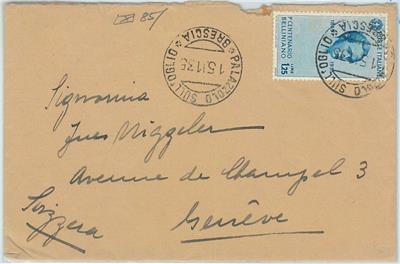 85/
PALAZZOLO SULL'OGLIO
* (BRESCIA) *
15.11.35
POSTE ITALIANE
1º CENTENARIO
BELLINIANO
LIRE
1,25
Signorina
Ines Niggeler
Avenue de Champel 3
Genève
Svizzera